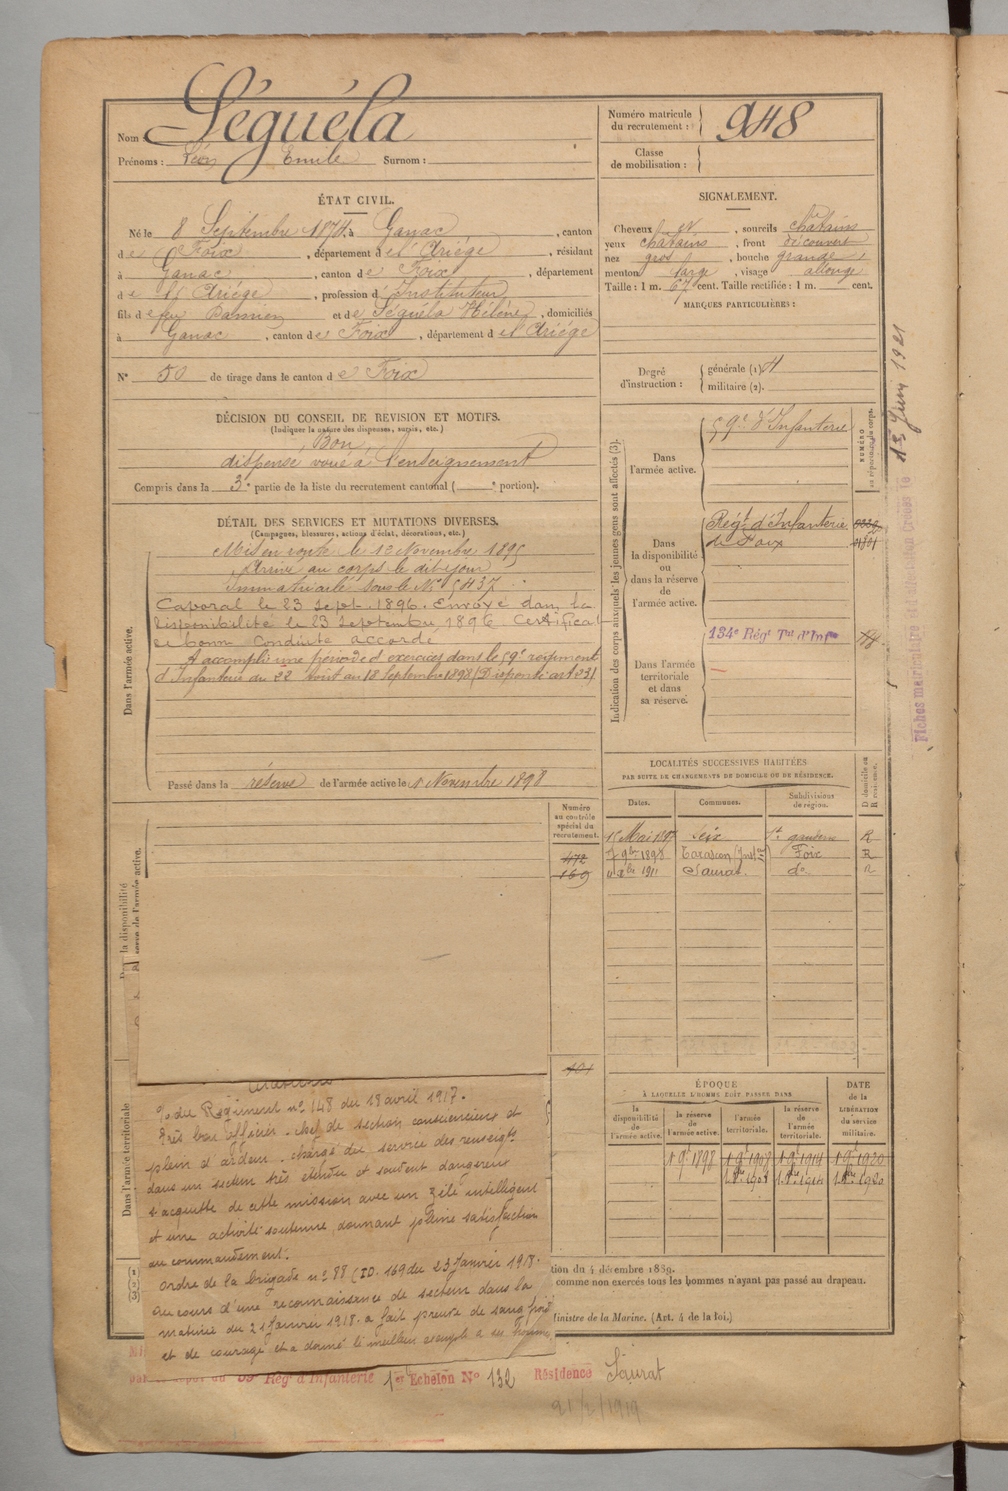 Nom : Séguéla
Prénoms : Léon Emile Surnom :
Numéro matricule du recrutement : 948
Classe de mobilisation :
ÉTAT CIVIL.
Né le 8 Septembre 1874 à Ganac, canton
de Foix, département de l'Ariège, résidant
à Ganac, canton de Foix, département
de l'Ariège, profession d'Instituteur
fils de feu Damien et de Séguéla Hélène, domiciliés
à Ganac, canton de Foix, département de l'Ariège
N° 50 de tirage dans le canton de Foix
SIGNALEMENT.
Cheveux et, sourcils chatains
yeux chatains, front découvert
nez gros, bouche grande,
menton large, visage allongé
Taille : 1 m. 67 cent. Taille rectifiée : 1 m. cent.
MARQUES PARTICULIÈRES :
Degré d'instruction : générale (1). 4
militaire (2).
DÉCISION DU CONSEIL DE REVISION ET MOTIFS.
(Indiquer la nature des dispenses, sursis, etc.)
Bon
dispensé voué à l'enseignement
Compris dans la 3e partie de la liste du recrutement cantonal ( e portion).
DÉTAIL DES SERVICES ET MUTATIONS DIVERSES.
(Campagnes, blessures, actions d'éclat, décorations, etc.)
Dans l'armée active.
Mis en route le 13 Novembre 1895
Arrivé au corps le dit jour
Immatriculé sous le N° 5437
Caporal le 23 Sept. 1896. Envoyé dans la
disponibilité le 23 Septembre 1896 Certificat
de bonne Conduite accordé
A accompli une période d'exercices dans le 59e régiment
d'Infanterie du 22 Août au 18 Septembre 1898 (Dispensé art 23)
Passé dans la réserve de l'armée active le 1 Novembre 1898
Indication des corps auxquels les jeunes gens sont affectés (3).
NUMÉRO au répertoire du corps.
Dans l'armée active.
59e d'Infanterie
Dans la disponibilité ou dans la réserve de l'armée active.
Régt d'Infanterie
de Foix
Dans l'armée territoriale et dans sa réserve.
134e Régt Tal d'Infie
Fiches matriculaire et d'affectation Créées le 13 Juin 1921
LOCALITÉS SUCCESSIVES HABITÉES
PAR SUITE DE CHANGEMENTS DE DOMICILE OU DE RÉSIDENCE.
Dates. Communes. Subdivisions de région. D domicile ou R résidence.
15 Mai 1897 Seix St gaudens R
9bre 1898 Tarascon Foix R
1911 Saurat do R
Numéro au contrôle spécial du recrutement.
472
169
101
la disponibilité
Dans l'armée territoriale
ÉPOQUE
À LAQUELLE L'HOMME DOIT PASSER DANS
la disponibilité de l'armée active.
la réserve de l'armée active.
l'armée territoriale.
la réserve de l'armée territoriale.
DATE de la LIBÉRATION du service militaire.
1 9e 1898 1 9e 1908 1 9e 1914 1 9e 1920
% du Régiment n° 148 du 18 avril 1917.
Très bon officier - chef de section consciencieux et
plein d'ardeur. chargé du service des renseigts
dans un secteur très étendu et souvent dangereux
s'acquitte de cette mission avec un zèle intelligent
et une activité soutenue, donnant pleine satisfaction
au commandement.
ordre de la brigade n° 88 (ID. 169 du 23 Janvier 1918.
Au cours d'une reconnaissance de secteur dans la
matinée du 21 Janvier 1918. a fait preuve de sang froid
et de courage et a donné le meilleur exemple à ses hommes
tion du 4 décembre 1889.
comme non exercés tous les hommes n'ayant pas passé au drapeau.
Ministre de la Marine. (Art. 4 de la loi.)
59e Rég. d'Infanterie 1er Echelon N° 132 Résidence Saurat
21/2/1919